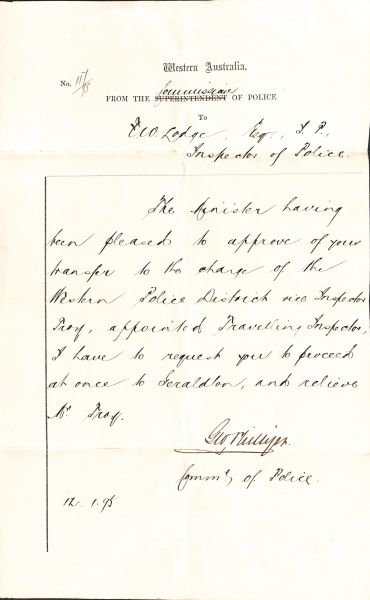 Western Australia.
No. 117/95
Commissioner
FROM THE SUPERINTENDENT OF POLICE
To
Lodge, Esq., J.P.,
Inspector of Police.
The Minister having
been pleased to approve of your
transfer to the charge of the
Western Police District vice Inspector
Troy, appointed Travelling Inspector,
I have to request you to proceed
at once to Geraldton, and relieve
Mr. Troy.
Geo Phillips.
Commr, of Police.
12.1.95